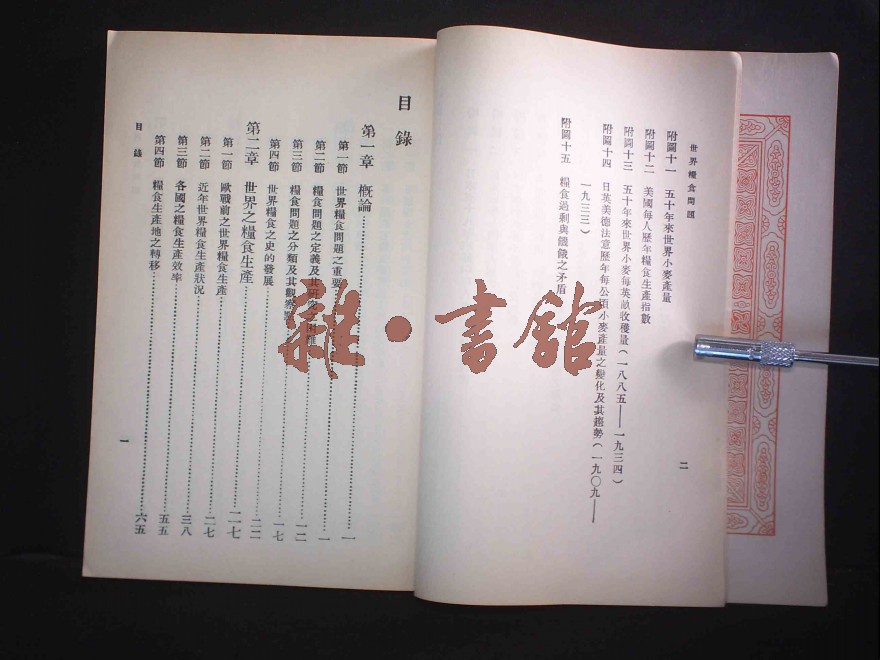 世界糧食問題
附圖十一 五十年來世界小麥產量
附圖十二 美國每人歷年糧食生產指數
附圖十三 五十年來世界小麥每英畝收穫量(一八八五——一九三四)
附圖十四 日英美德法意歷年每公頃小麥產量之變化及其趨勢(一九〇九——
一九三三)
附圖十五 糧食過剩與饑餓之矛盾
二
目錄
第一章 概論……一
第一節 世界糧食問題之重要……一
第二節 糧食問題之定義及其……一二
第三節 糧食問題之分類及其觀……一七
第四節 世界糧食之史的發展……二二
第二章 世界之糧食生產……二七
第一節 歐戰前之世界糧食生產……二七
第二節 近年世界糧食生產狀況……三八
第三節 各國之糧食生產效率……五五
第四節 糧食生產地之轉移……六五
目錄
一
雜·書館